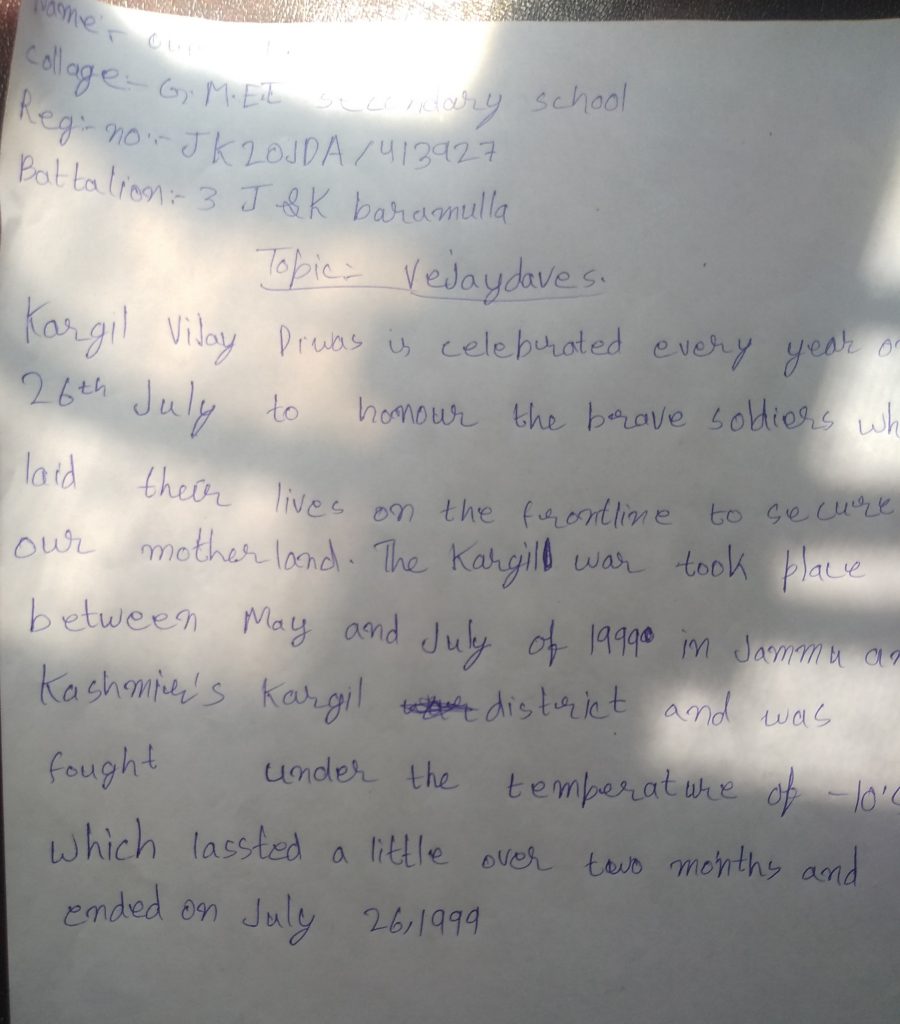 Name:-
Collage:- G. M. E.I secondary school
Reg:- no:- JK20JDA/413927
Battalion:- 3 J &K baramulla
Topic:- Vejaydaves.
Kargil Vijay Diwas is celebrated every year
26th July to honour the brave soldiers
laid their lives on the frontline to secure
our motherland. The Kargil war took place
between May and July of 1999 in Jammu
Kashmir's Kargil district and was
fought under the temperature of -10°C
which lassted a little over two months and
ended on July 26,1999